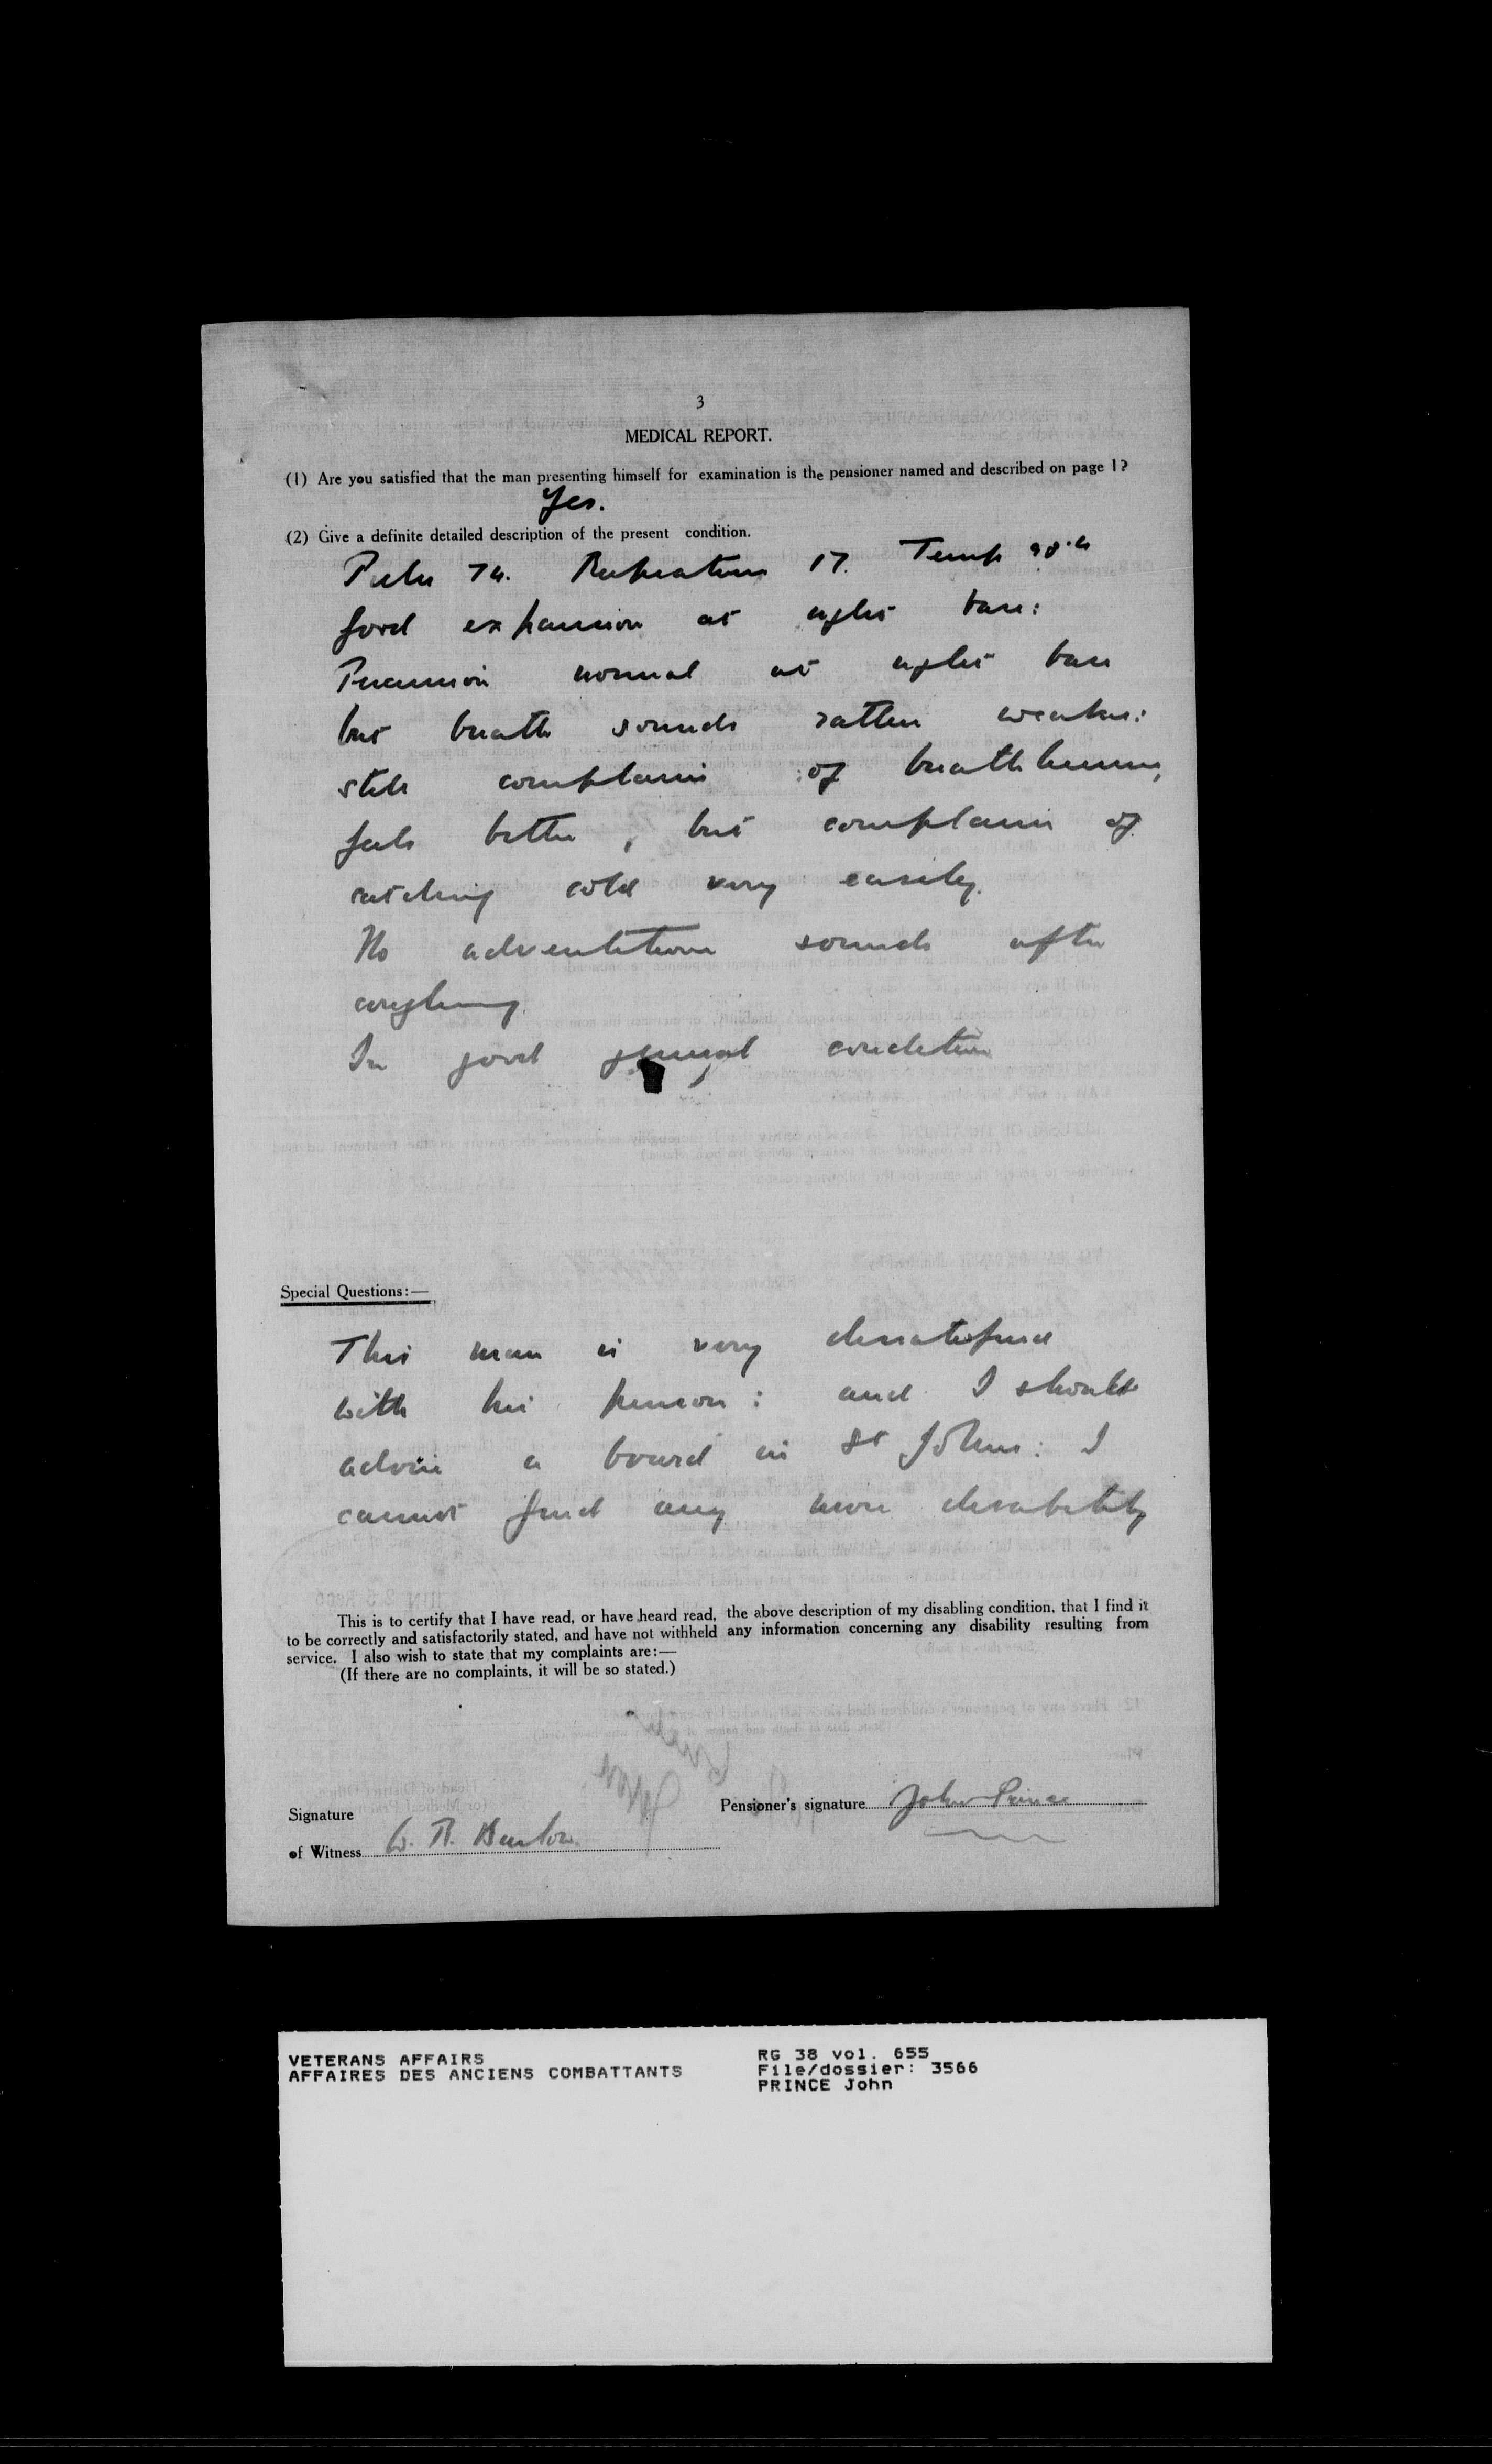 3
MEDICAL REPORT.
(1) Are you satisfied that the man presenting himself for examination is the pensioner named and described on page 1?
Yes.
(2) Give a definite detailed description of the present condition.
Pulse 74. Respiration 17. Temp
Good expansion at right base:
Percussion normal at right base
but breath sounds rather weaker:
still complains of breathlessness,
feels better, but complains of
catching cold very easily.
No adventitious sounds after
coughing.
In good general condition
Special Questions:—
This man is very dissatisfied
with his pension: and I should
advise a board in St Johns: I
cannot find any more disability
This is to certify that I have read, or have heard read, the above description of my disabling condition, that I find it
to be correctly and satisfactorily stated, and have not withheld any information concerning any disability resulting from
service. I also wish to state that my complaints are:—
(If there are no complaints, it will be so stated.)
Pensioner's signature John Prince
Signature
of Witness
VETERANS AFFAIRS
AFFAIRES DES ANCIENS COMBATTANTS
RG 38 vol. 655
File/dossier: 3566
PRINCE John